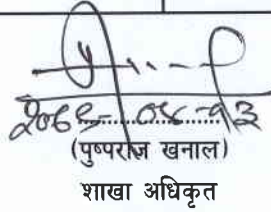 २०६९-०४-१३
(पुष्पराज खनाल)
शाखा अधिकृत